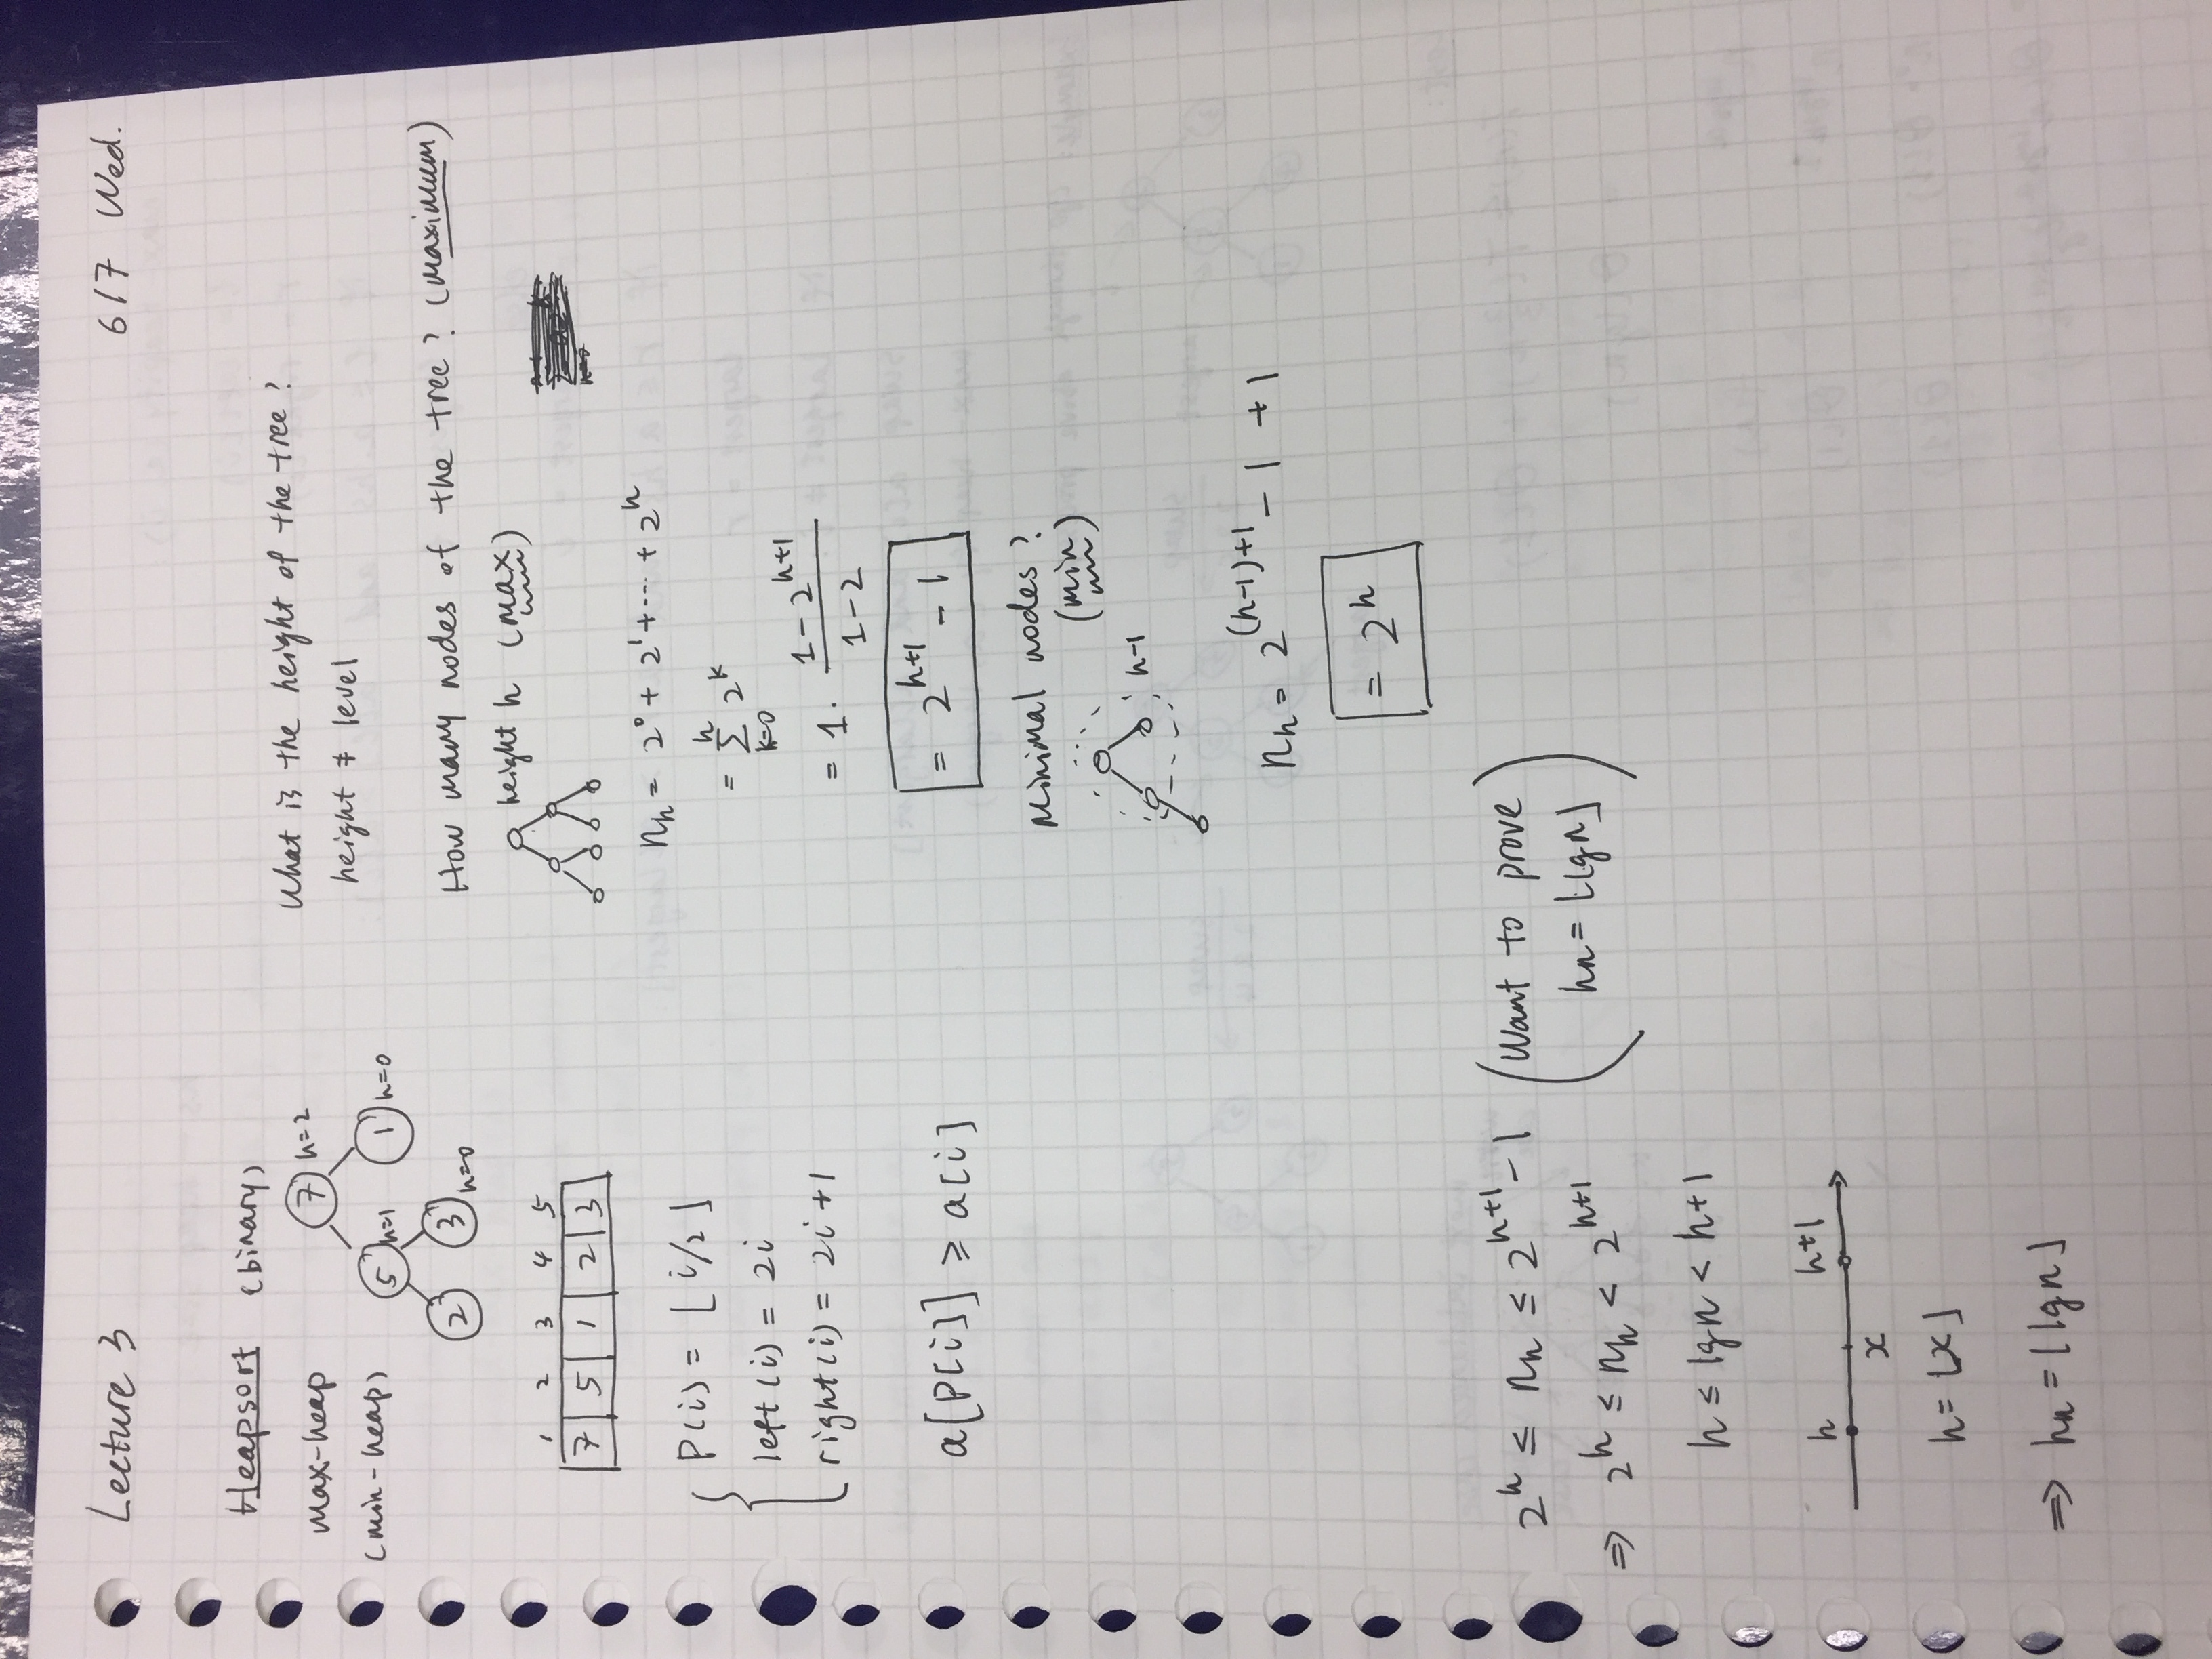 Lecture 3
6/7 Wed.
Heapsort (binary)
max-heap
(min-heap)
7 h=2
5 h=1
1 h=0
2
3 h=0
1 2 3 4 5
7 5 1 2 3
P(i) = ⌊i/2⌋
left(i) = 2i
right(i) = 2i+1
a[P[i]] ≥ a[i]
What is the height of the tree?
height ≠ level
How many nodes of the tree? (maximum)
height h (max)
n_h = 2^0 + 2^1 + ⋯ + 2^h
= Σ_{k=0}^{h} 2^k
= 1 · (1-2^{h+1})/(1-2)
= 2^{h+1} - 1
Minimal nodes?
(min)
h-1
n_h = 2^{(h-1)+1} - 1 + 1
= 2^h
2^h ≤ n_h ≤ 2^{h+1} - 1
(Want to prove
h_n = ⌊lg n⌋)
⇒ 2^h ≤ n_h < 2^{h+1}
h ≤ lg n < h+1
h h+1
x
h = ⌊x⌋
⇒ h_n = ⌊lg n⌋